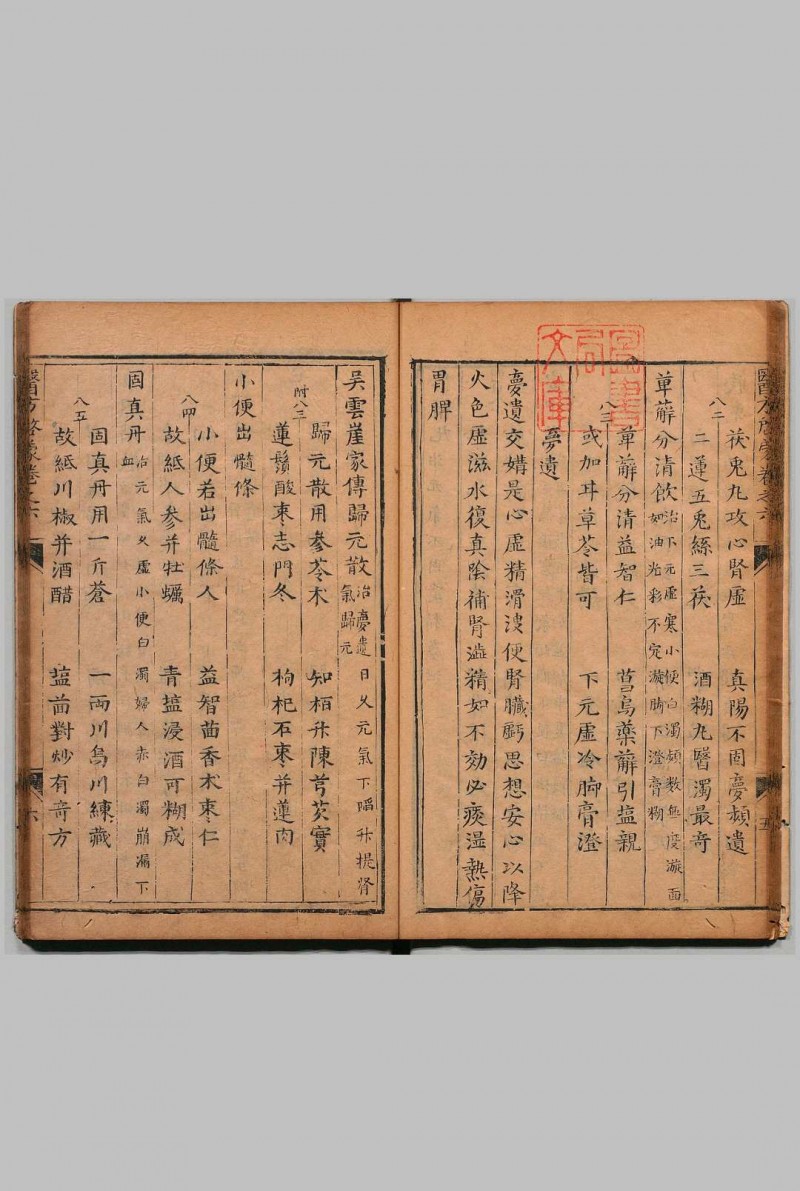 醫方啓蒙卷之六
八二
茯兎丸攻心腎虛 真陽不固夢頻遺
二蓮五兎絲三茯 酒糊丸醫濁最奇
萆薢分清飲 治下元虛寒小便白濁頻數無度漩面如油光彩不定漩脚下澄膏糊
八三
萆薢分清益智仁 菖烏藥薢引塩親
或加甘草苓皆可 下元虛冷脚膏澄
夢遺
夢遺交媾是心虛精滑溲便腎臟虧思想安心以降
火色虛滋水復真陰補腎澁精如不効必痰湿熱傷
胃脾
五
圖書局文庫
吳雲崖家傳歸元散 治夢遺日久元氣下陷升提腎氣歸元
附八三
歸元散用參苓朮 知栢升陳芎芡實
蓮鬚酸棗志門冬 枸杞石棗并蓮肉
小便出髓條
八四
小便若出髓條人 益智茴香朮棗仁
故紙人參并牡蠣 青塩浸酒可糊成
固真丹 治元氣久虛小便白濁婦人赤白濁崩漏下血
八五
固真丹用一斤蒼 一両川烏川練藏
故紙川椒并酒醋 塩茴對炒有奇方
醫方啓蒙卷之六
六